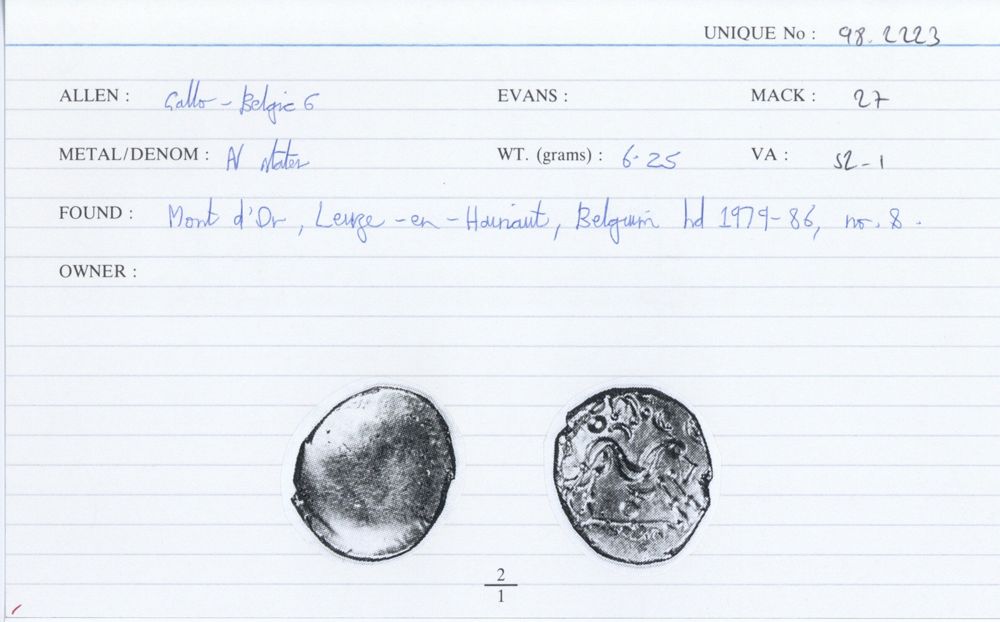 UNIQUE No : 98.2223
ALLEN : Gallo-Belgic E EVANS : MACK : 27
METAL/DENOM : AV stater WT. (grams) : 6.25 VA : 52-1
FOUND : Mont d'Or, Leuze-en-Hainaut, Belgium hd 1979-86, no. 8.
OWNER :
2
1